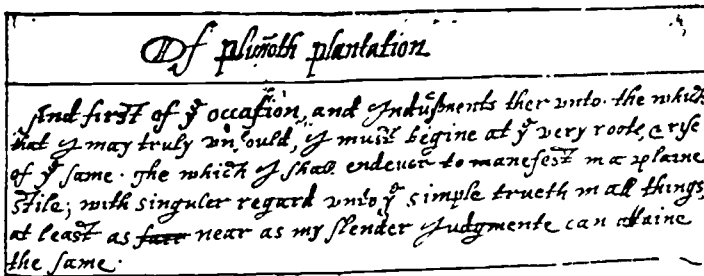 Of plim̃oth plantation
And first of yͤ occasion, and Indusments ther vnto· the which
that I may truly vnfould, I must begine at yͤ very roote, & rise
of yͤ same· The which I shall endeuer to manefest in a plaine
stile; with singuler regard vnto yͤ simple trueth in all things,
at least as near as my slender Judgmente can attaine
the same·